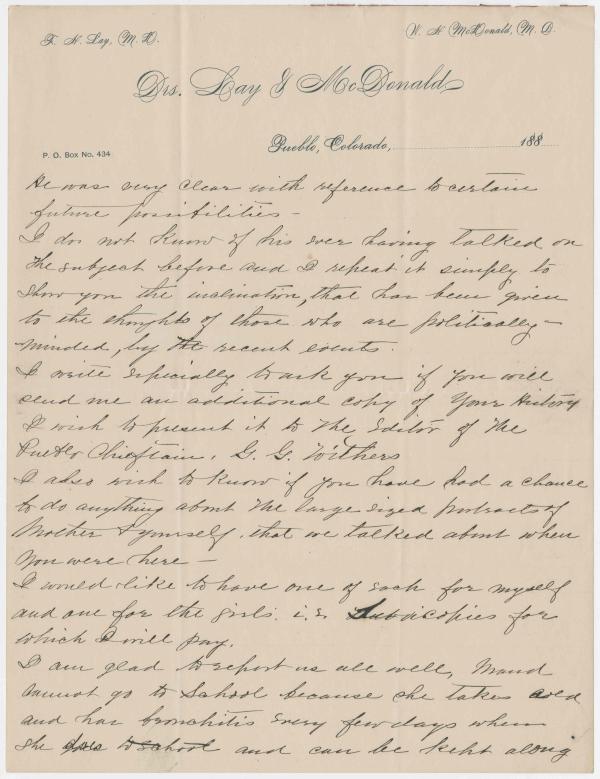 F. H. Lay, M. D.
W. H. McDonald, M. D.
Drs. Lay & McDonald
Pueblo, Colorado, 188
P. O. Box No. 434
He was very clear with reference to certain
future possibilities –
I do not know of his ever having talked on
the subject before and I repeat it simply to
show you the inclination, that has been given
to the thoughts of those who are politically –
minded, by the recent events.
I write especially to ask you if you will
send me an additional copy of Your History
I wish to present it to the Editor of the
Pueblo Chieftain, G. G. Withers
I also wish to know if you have had a chance
to do anything about the large sized portraits of
Mother & yourself, that we talked about when
you were here –
I would like to have one of each for myself
and one for the girls. i.e. copies for
which I will pay.
I am glad to report us all well, Maud
cannot go to School because she takes cold
and has bronchitis every few days when
she does to school and can be kept along